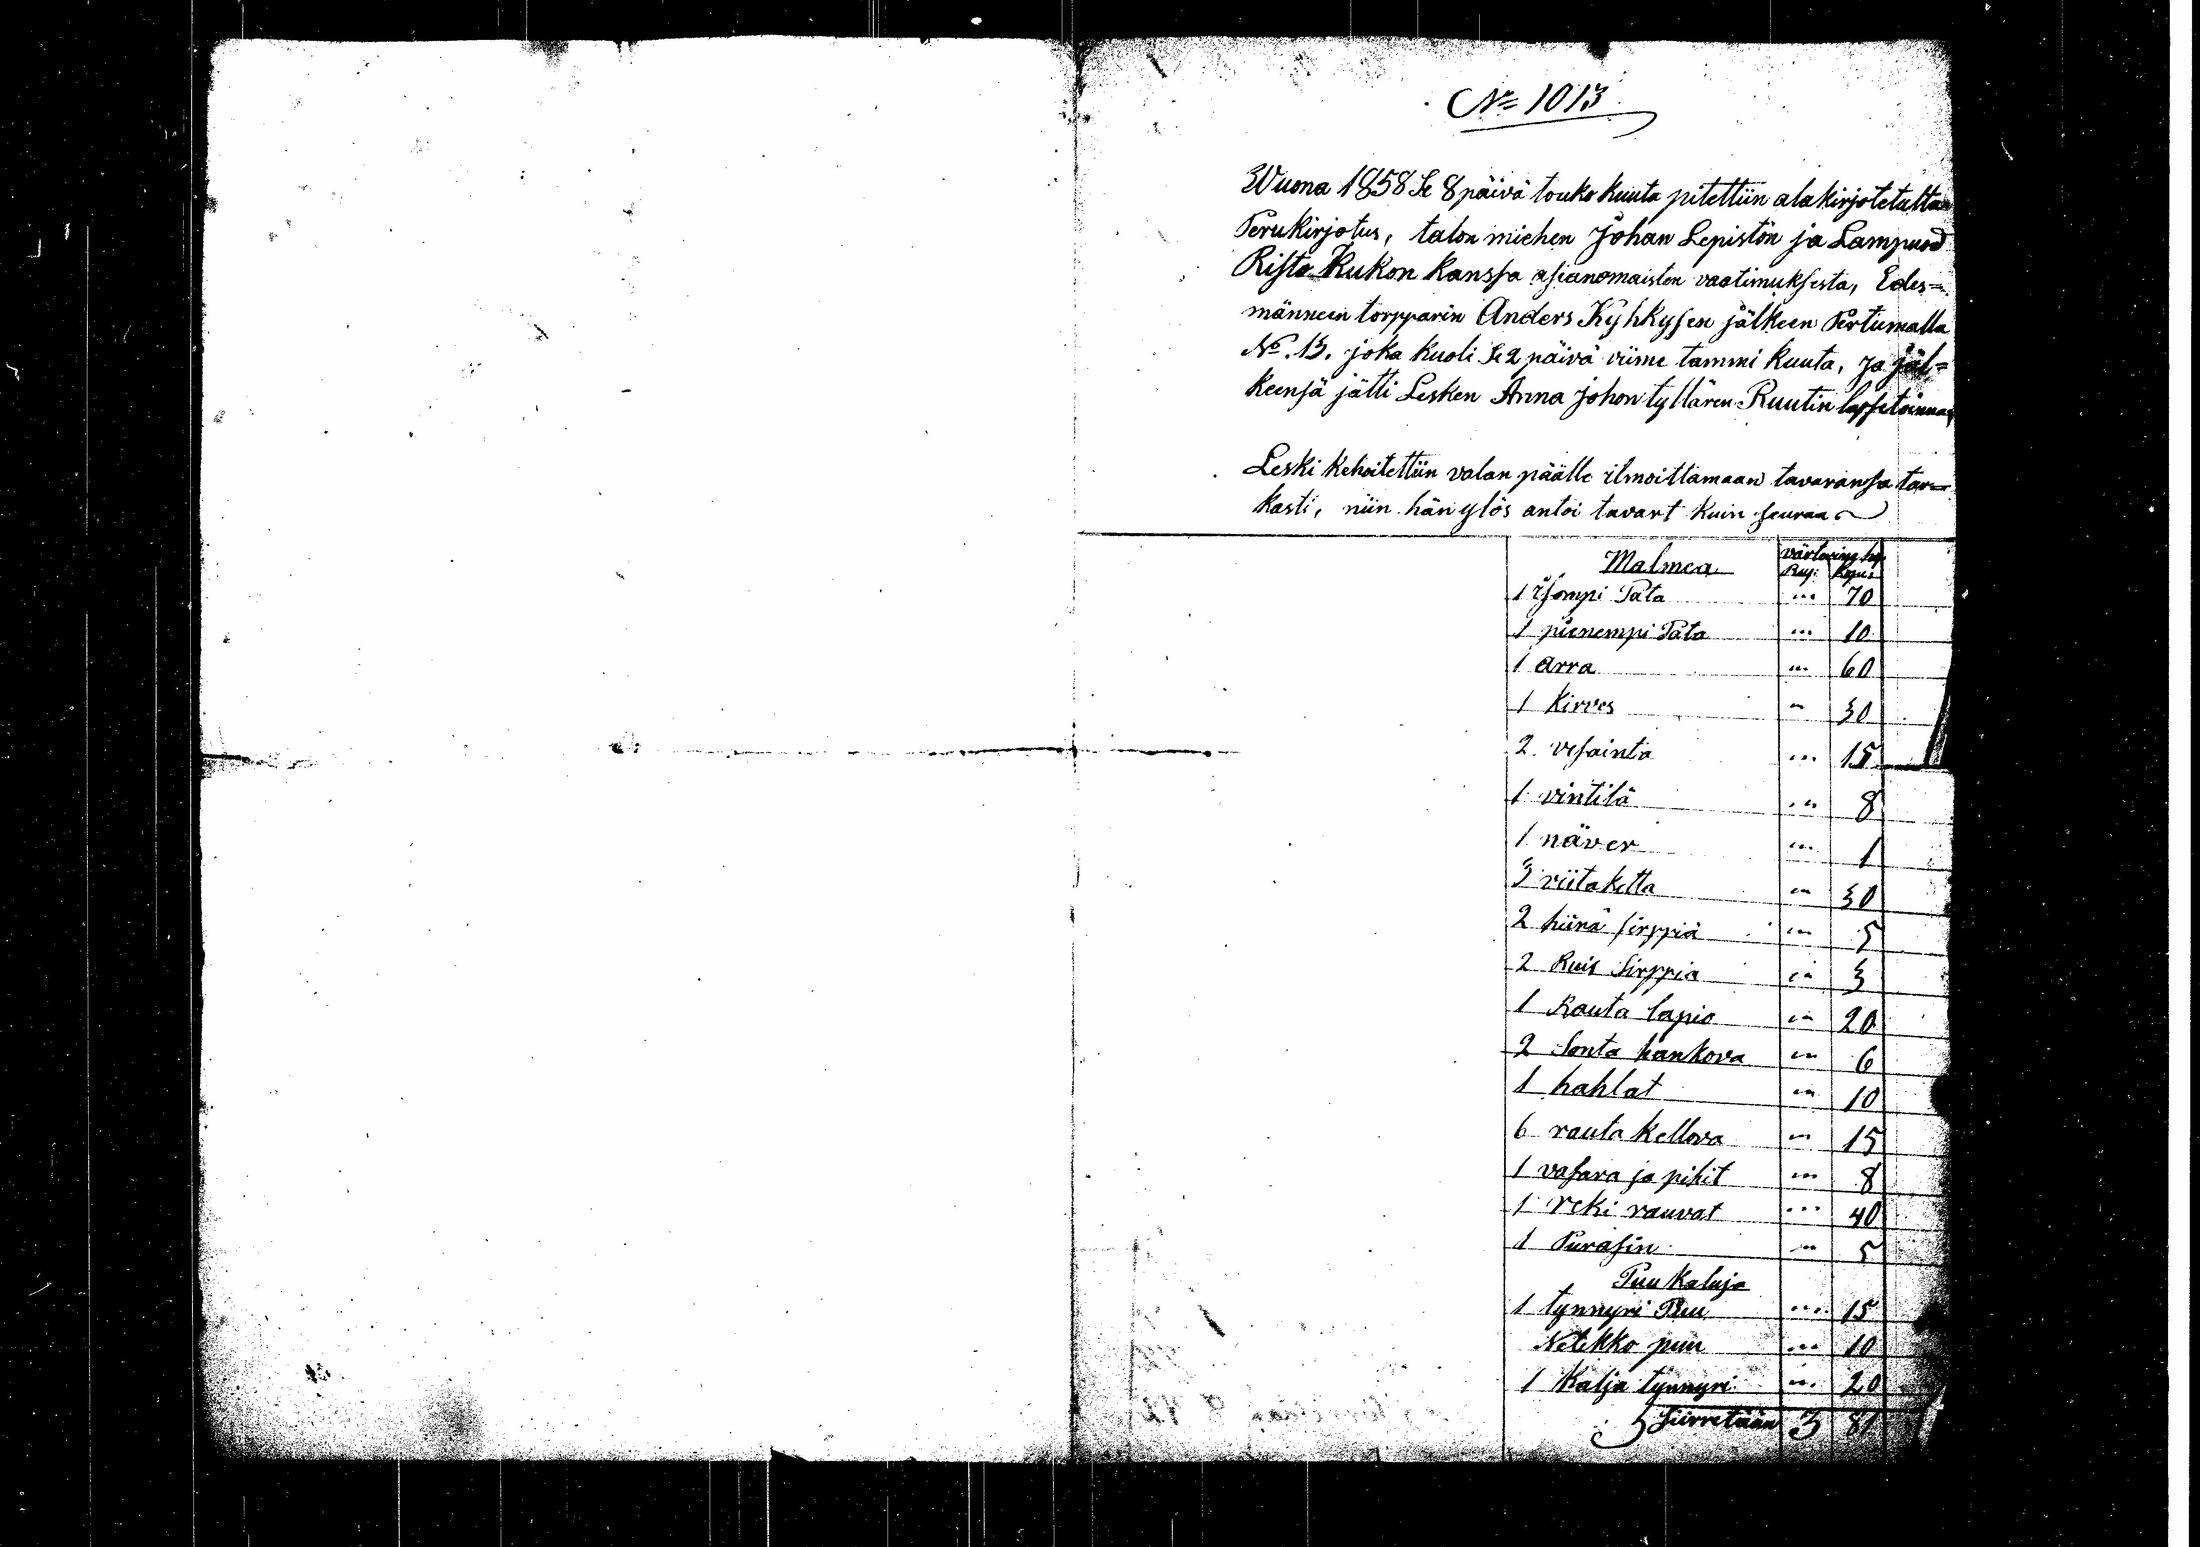 No 1013
Wuona 1858 Se 8 päivä touko kuuta pitettiin alakirjotetultan
Perukirjotus, talon miehen Johan Lepistön ja Lampuod
Risto Kukon kanssa asianomaisten vaatimuksesta, Edes=
männeen torpparin Anders Kyhkysen jälkeen Pertumalla
No. 13. joka kuoli Se 2 päivä viime tammi kuuta, ja jäl=
keensä jätti Lesken Anna Johon tyttären Ruutin
Leski kehoitettiin valan päälle ilmoittamaan tavaransa tar=
kasti, niin hän ylös antoi tavart kuin seuraa
Malmea Rup: Kopeis
1 isompi Pata " 70
1 pienempi Pata " 10
1 arra " 60
1 Kirves " 30
2 vesainta " 15
1 vintilä " 8
1 näver " 1
3 viitaketta " 30
2 hiinä sirppiä " 5
2 Ruis Sirppia " 3
1 Rauta lapio " 20
2 Sonta hankova " 6
1 hahlat " 10
6 rauta kellova " 15
1 vasara ja pihit " 8
1 reki rauvat " 40
1 Purasin " 5
Puu Kaluja
1 tynnyri Puu " 15
Netekko puu " 10
1 Kalja tynnyri " 20
Siirretään 3 81